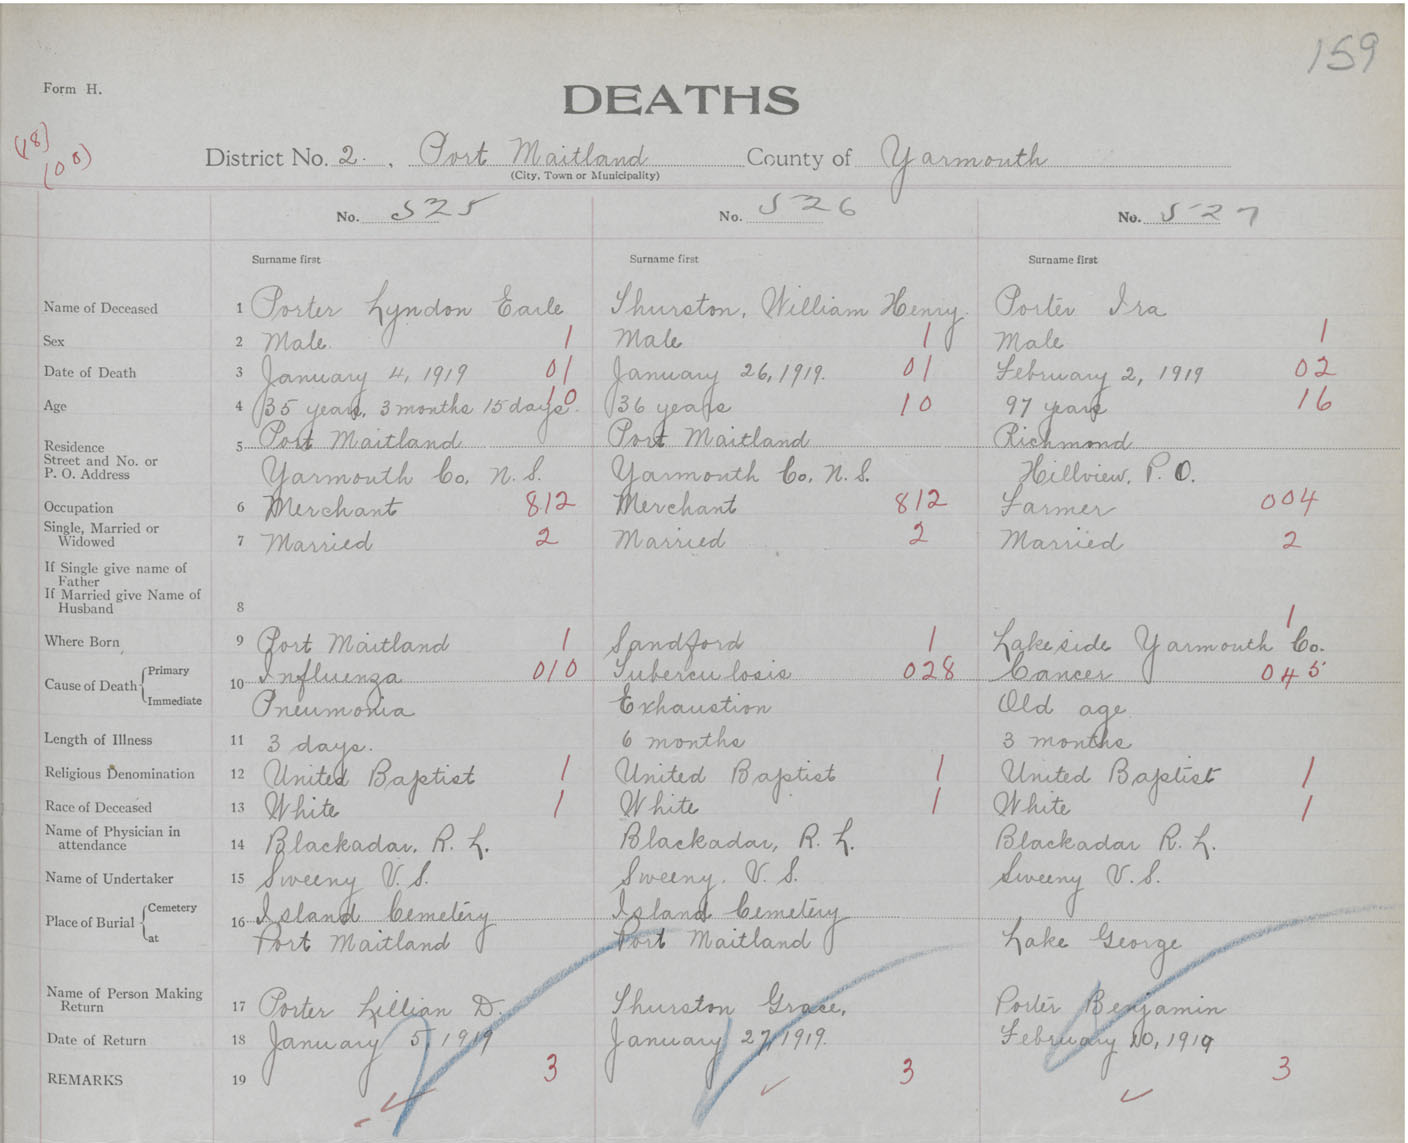 159
Form H.
DEATHS
(18)
(08)
District No. 2. , Port Maitland County of Yarmouth
(City, Town or Municipality)
No. 525 No. 526 No. 527
Surname first Surname first Surname first
Name of Deceased 1 Porter Lyndon Earle Thurston, William Henry. Porter Ira
Sex 2 Male. 1 Male 1 Male 1
Date of Death 3 January 4, 1919 01 January 26, 1919. 01 February 2, 1919 02
Age 4 35 years, 3 months 15 days. 10 36 years 10 97 years 16
Residence 5 Port Maitland Port Maitland Richmond
Street and No. or
P. O. Address Yarmouth Co. N. S. Yarmouth Co. N. S. Hillview, P. O.
Occupation 6 Merchant 812 Merchant 812 Farmer 004
Single, Married or
Widowed 7 Married 2 Married 2 Married 2
If Single give name of
Father
If Married give Name of
Husband 8
Where Born 9 Port Maitland 1 Sandford 1 Lakeside Yarmouth Co. 1
Cause of Death Primary 10 Influenza 010 Tuberculosis 028 Cancer 045
Immediate Pneumonia Exhaustion Old age
Length of Illness 11 3 days. 6 months 3 months
Religious Denomination 12 United Baptist 1 United Baptist 1 United Baptist 1
Race of Deceased 13 White 1 White 1 White 1
Name of Physician in
attendance 14 Blackadar, R. L. Blackadar, R. L. Blackadar R. L.
Name of Undertaker 15 Sweeny V. S. Sweeny. V. S. Sweeny V. S.
Place of Burial Cemetery 16 Island Cemetery Island Cemetery
at Port Maitland Port Maitland Lake George
Name of Person Making
Return 17 Porter Lillian D. Thurston Grace, Porter Benjamin
Date of Return 18 January 5, 1919 January 27, 1919. February 10, 1919
REMARKS 19 3 3 3